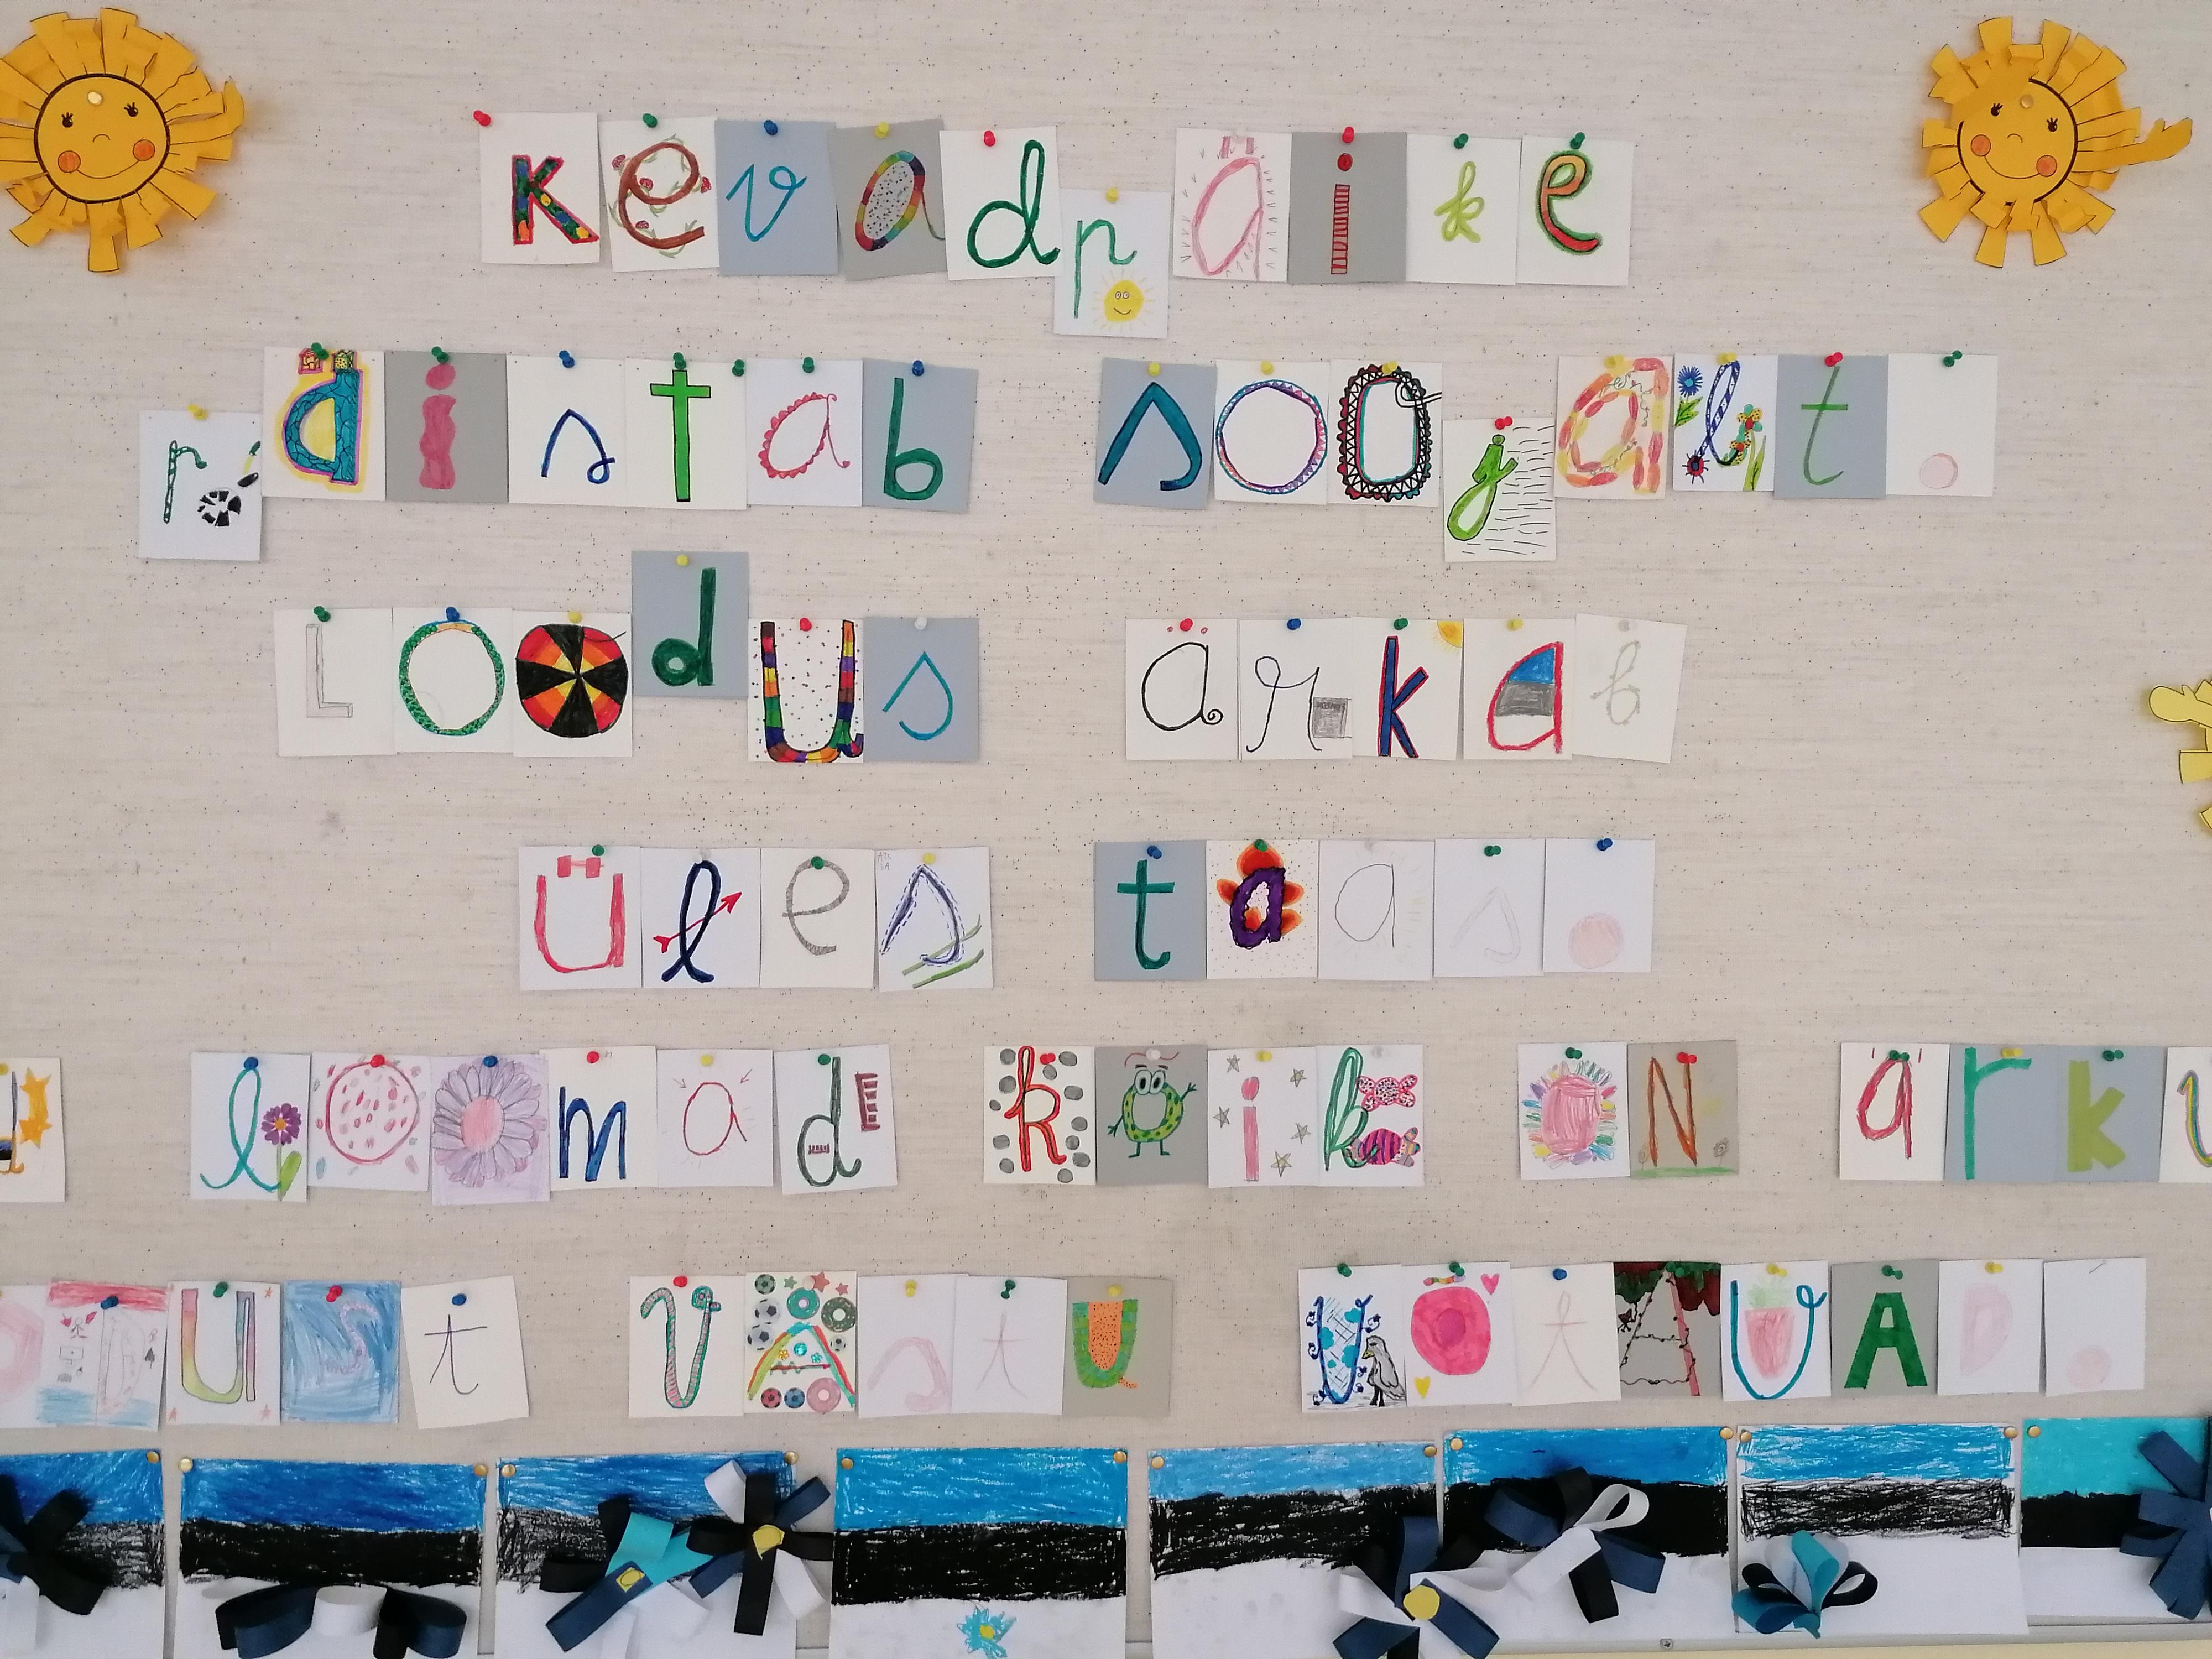 kevadpäike
päistab soojalt.
Loodus ärkab
üles taas.
loomad kõik ON
vAstu võtAvAD.